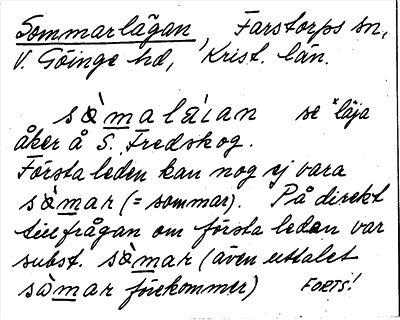 Sommarlägan, Farstorps sn,
V. Göinge hd, Krist. län.
sòmala̍ian se *läja
åker å S. Fredskog.
Första leden kan nog ej vara
sòmar (= sommar). På direkt
tillfrågan om första leden var
subst. sòmar (även uttalet
sàmar förekommer) FORTS!